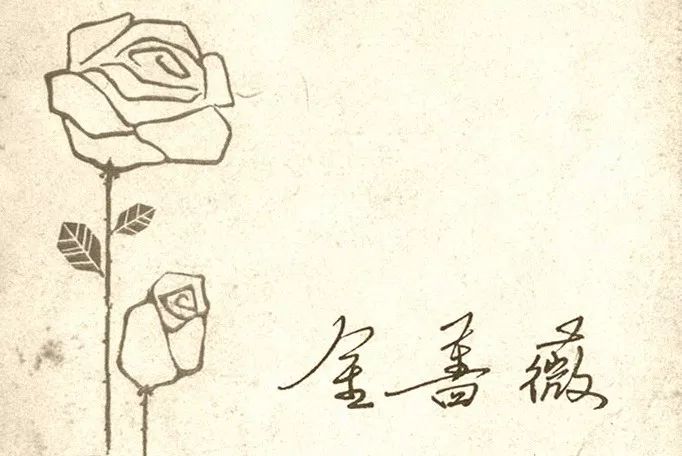 金蔷薇